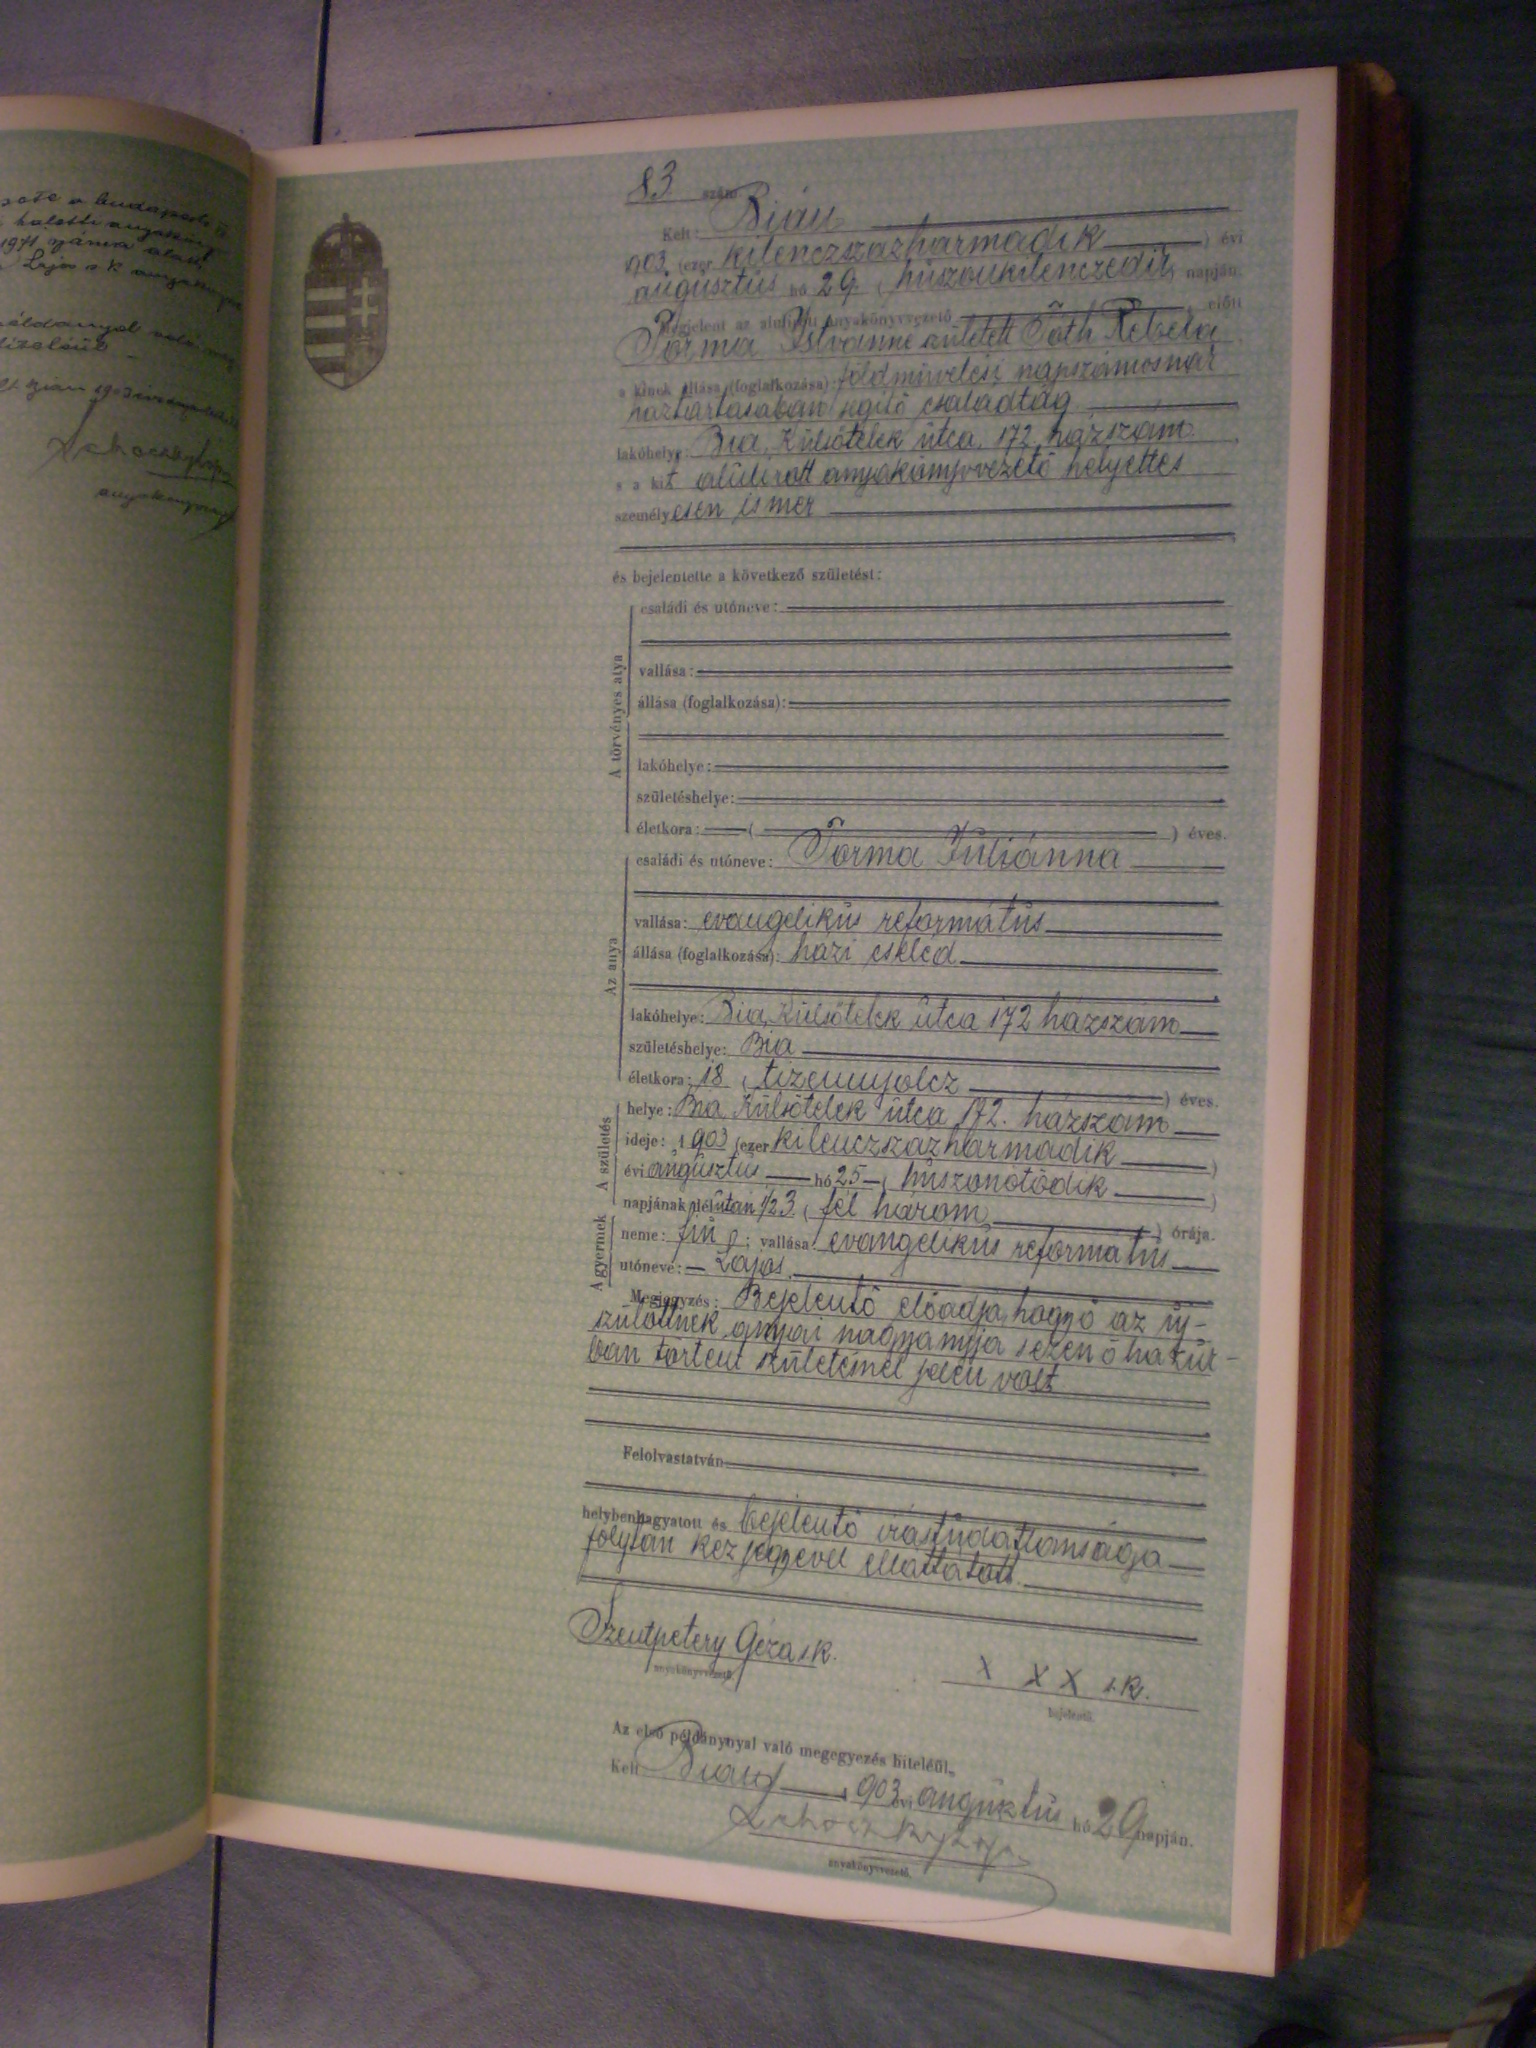 a budapesti
1971 számu alatt
Lajos s.k.
Bián 1903
83 szám
Kelt: Bián
1903 (ezer kilenczszázharmadik ) évi
augusztus hó 29 (huszonkilenczedik napján,
Megjelent az alulirott anyakönyvvezető előtt
Torma Istvánné született Tóth Rebeka
a kinek állása (foglalkozása): földmüvelési napszámosnak
háztartásában segitő családtag
lakóhelye: Bia, Külsőtelek utca, 172 házszám
s a kit alulirott anyakönyvvezető helyettes
személyesen ismer
és bejelentette a következő születést:
A törvényes atya
családi és utóneve:
vallása:
állása (foglalkozása):
lakóhelye:
születéshelye:
életkora: ( ) éves.
Az anya
családi és utóneve: Torma Juliánna
vallása: evangelikus református
állása (foglalkozása): házi cseléd
lakóhelye: Bia, Külsőtelek utca 172 házszám
születéshelye: Bia
életkora: 18 (tizennyolcz ) éves.
A születés
helye: Bia Külsőtelek utca 172. házszám
ideje: 1903 (ezer kilenczszázharmadik )
évi augusztus hó 25 ( huszonötödik )
napjának délután 1/2 3 ( fél három ) órája.
A gyermek
neme: fiu ; vallása: evangelikus református
utóneve: Lajos.
Megjegyzés: Bejelentő előadja, hogy ő az uj-
szülöttnek anyai nagyanyja s ezen ő házuk-
ban történt születésnél jelen volt
Felolvastatván
helybenhagyatott és bejelentő irástudatlansága
folytán kézjegyével elláttatott.
Szentpétery Géza s.k.
anyakönyvvezető.
X X X s.k.
bejelentő.
Az első példánynyal való megegyezés hiteléül.
Kelt Bián, 1903 évi augusztus hó 29 napján.
anyakönyvvezető.